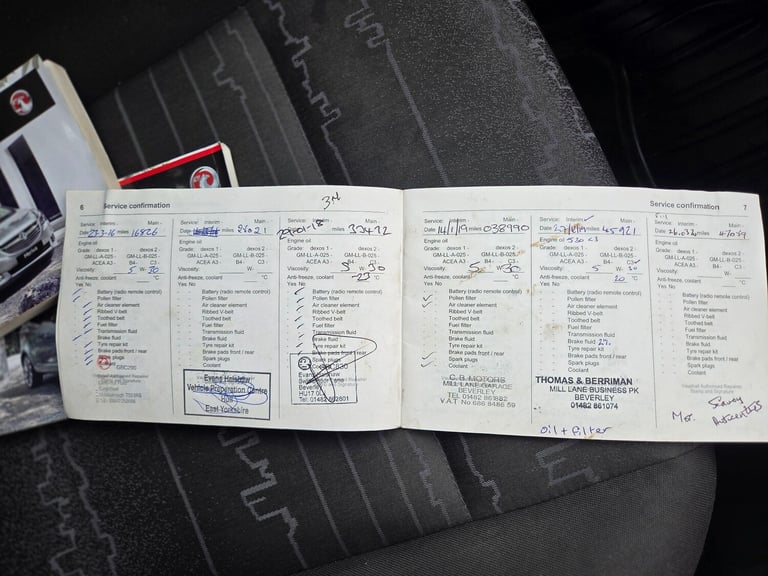 6 Service confirmation
Service: Interim - Main -
Date 23-3-16 miles 16826
Engine oil
Grade: dexos 1 - dexos 2 -
GM-LL-A-025 - GM-LL-B-025 -
ACEA A3 - B4- C3-
Viscosity: 5 W- 30
Anti-freeze, coolant °C
Yes No
Battery (radio remote control)
Pollen filter
Air cleaner element
Ribbed V-belt
Toothed belt
Fuel filter
Transmission fluid
Brake fluid
Tyre repair kit
Brake pads front / rear
Spark plugs
Coolant
Service: Interim - Main -
Date miles
Engine oil
Grade: dexos 1 - dexos 2 -
GM-LL-A-025 - GM-LL-B-025 -
ACEA A3 - B4- C3-
Viscosity: W-
Anti-freeze, coolant °C
Yes No
Battery (radio remote control)
Pollen filter
Air cleaner element
Ribbed V-belt
Toothed belt
Fuel filter
Transmission fluid
Brake fluid
Tyre repair kit
Brake pads front / rear
Spark plugs
Coolant
Evans Halshaw
Vehicle Preparation Centre
Hull
East Yorkshire
Service: Interim - Main -
miles 32472
Engine oil
Grade: dexos 1 - dexos 2 -
GM-LL-A-025 - GM-LL-B-025 -
ACEA A3 - B4- C3-
Viscosity: 5 W- 30
Anti-freeze, coolant °C
Yes No
Battery (radio remote control)
Pollen filter
Air cleaner element
Ribbed V-belt
Toothed belt
Fuel filter
Transmission fluid
Brake fluid
Tyre repair kit
Brake pads front / rear
Spark plugs
Coolant
Beverley
HU17 0L
Service confirmation 7
Service: Interim - Main -
Date 14/1/19 miles 038990
Engine oil
Grade: dexos 1 - dexos 2 -
GM-LL-A-025 - GM-LL-B-025 -
ACEA A3 - B4- C3-
Viscosity: 5 W- 30
Anti-freeze, coolant °C
Yes No
Battery (radio remote control)
Pollen filter
Air cleaner element
Ribbed V-belt
Toothed belt
Fuel filter
Transmission fluid
Brake fluid
Tyre repair kit
Brake pads front / rear
Spark plugs
Coolant
C. B. MOTORS
MILL LANE GARAGE
BEVERLEY
TEL 01482 861882
V.A.T No 686 8488 59
Service: Interim - Main -
Date miles 45921
Engine oil 530 C3
Grade: dexos 1 - dexos 2 -
GM-LL-A-025 - GM-LL-B-025 -
ACEA A3 - B4- C3-
Viscosity: 5 W- 30
Anti-freeze, coolant 20 °C
Yes No
Battery (radio remote control)
Pollen filter
Air cleaner element
Ribbed V-belt
Toothed belt
Fuel filter
Transmission fluid
Brake fluid 2%
Tyre repair kit
Brake pads front / rear
Spark plugs
Coolant
THOMAS & BERRIMAN
MILL LANE BUSINESS PK
BEVERLEY
01482 861074
Oil + Filter
Service: Interim - Main -
Date miles
Engine oil
Grade: dexos 1 - dexos 2 -
GM-LL-A-025 - GM-LL-B-025 -
ACEA A3 - B4- C3-
Viscosity: W-
Anti-freeze, coolant °C
Yes No
Battery (radio remote control)
Pollen filter
Air cleaner element
Ribbed V-belt
Toothed belt
Fuel filter
Transmission fluid
Brake fluid
Tyre repair kit
Brake pads front / rear
Spark plugs
Coolant
Vauxhall Authorised Repairer
Stamp and Signature